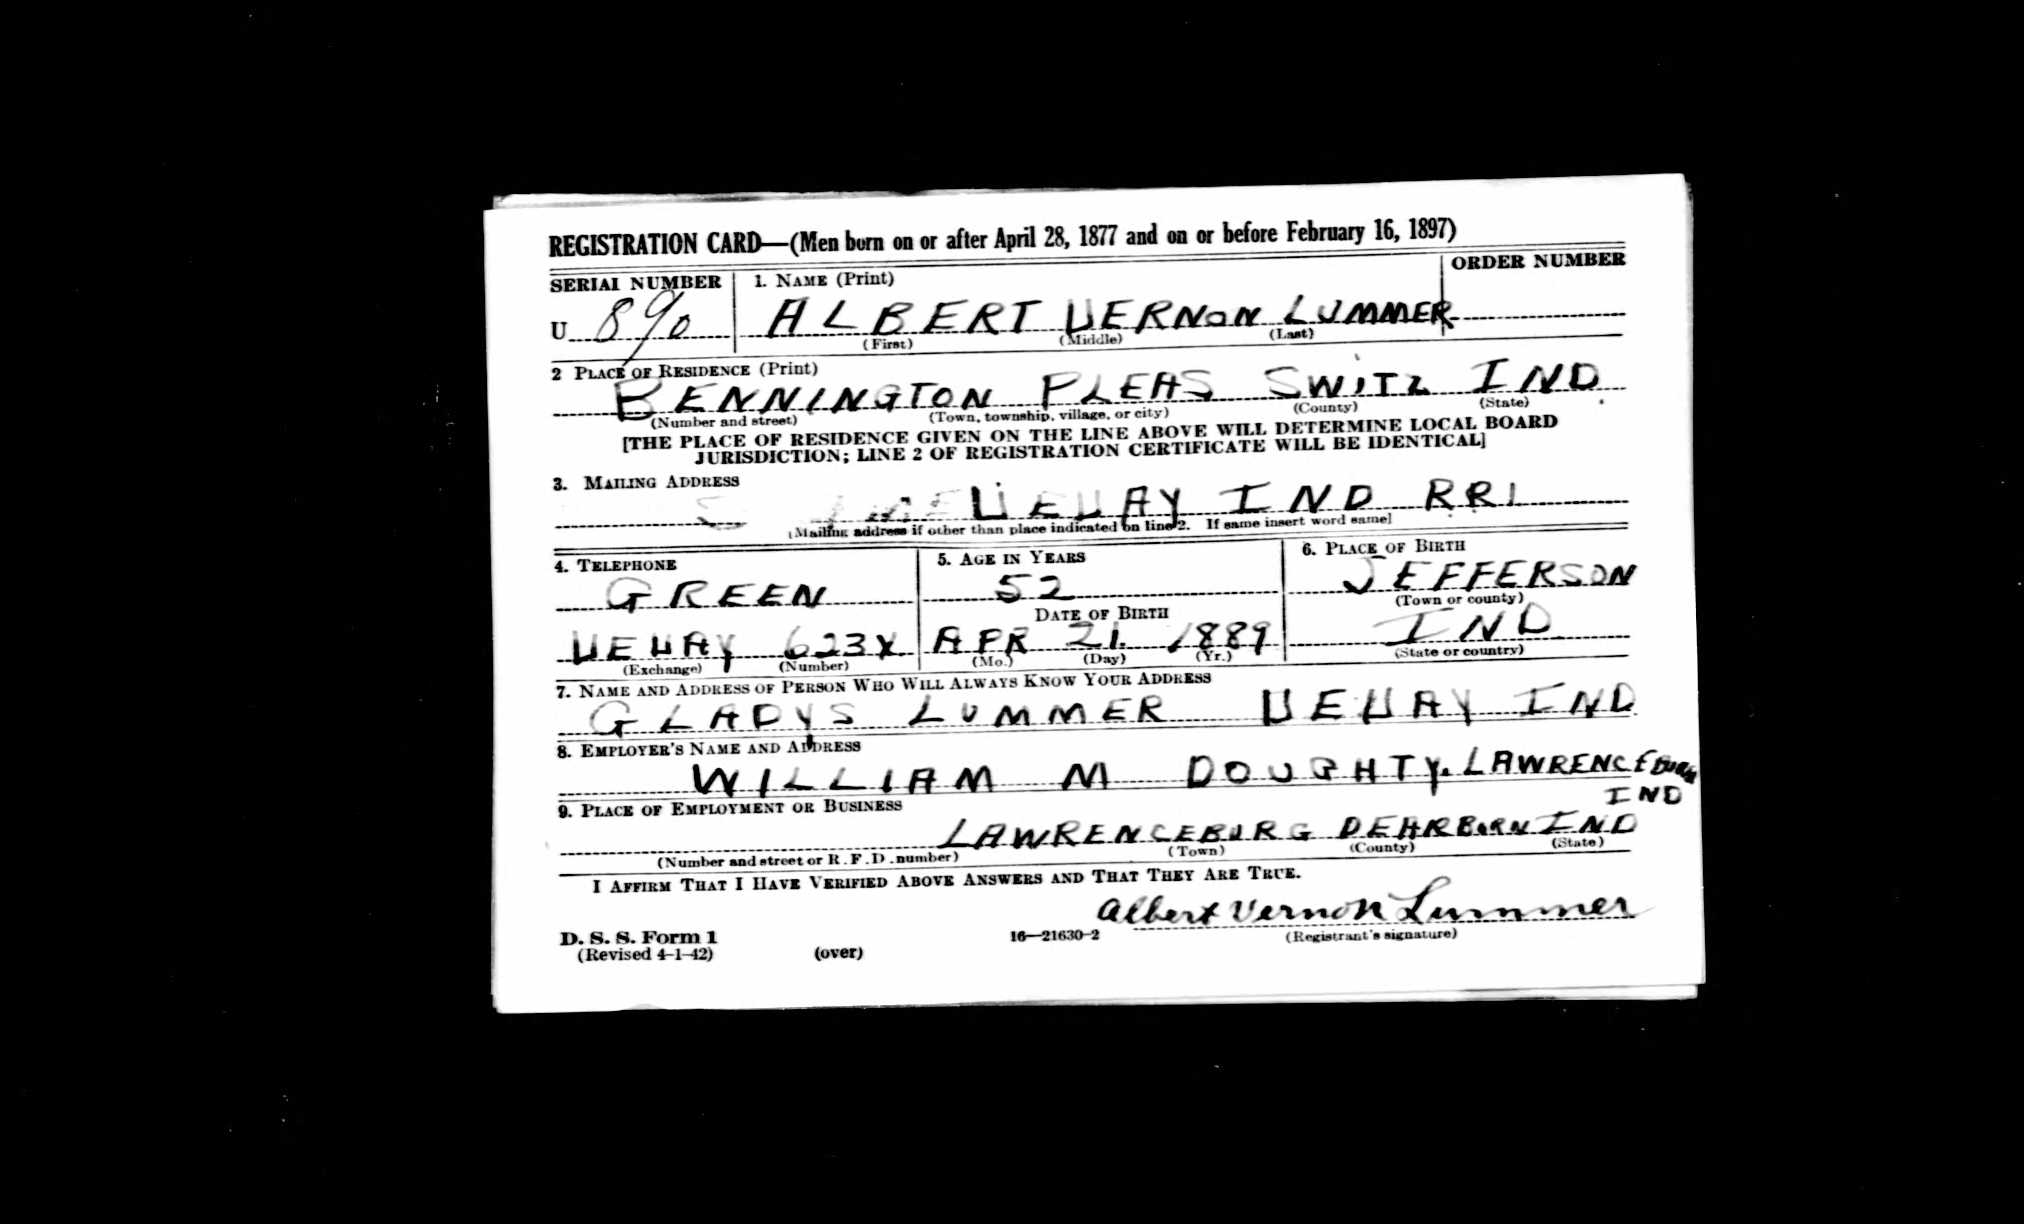 REGISTRATION CARD—(Men born on or after April 28, 1877 and on or before February 16, 1897)
SERIAL NUMBER 1. NAME (Print) ORDER NUMBER
U 890 ALBERT VERNON LUMMER
(First) (Middle) (Last)
2 PLACE OF RESIDENCE (Print)
BENNINGTON PLEAS SWITZ IND
(Number and street) (Town, township, village, or city) (County) (State)
[THE PLACE OF RESIDENCE GIVEN ON THE LINE ABOVE WILL DETERMINE LOCAL BOARD
JURISDICTION; LINE 2 OF REGISTRATION CERTIFICATE WILL BE IDENTICAL]
3. MAILING ADDRESS
VEVAY IND RR1
[Mailing address if other than place indicated on line 2. If same insert word same]
4. TELEPHONE 5. AGE IN YEARS 6. PLACE OF BIRTH
GREEN 52 JEFFERSON
DATE OF BIRTH (Town or county)
VEVAY 623X APR 21. 1889 IND
(Exchange) (Number) (Mo.) (Day) (Yr.) (State or country)
7. NAME AND ADDRESS OF PERSON WHO WILL ALWAYS KNOW YOUR ADDRESS
GLADYS LUMMER VEVAY IND
8. EMPLOYER'S NAME AND ADDRESS
WILLIAM M DOUGHTY. LAWRENCEBURG
IND
9. PLACE OF EMPLOYMENT OR BUSINESS
LAWRENCEBURG DEARBORN IND
(Number and street or R. F. D. number) (Town) (County) (State)
I AFFIRM THAT I HAVE VERIFIED ABOVE ANSWERS AND THAT THEY ARE TRUE.
Albert Vernon Lummer
D. S. S. Form 1 16—21630-2 (Registrant's signature)
(Revised 4-1-42) (over)